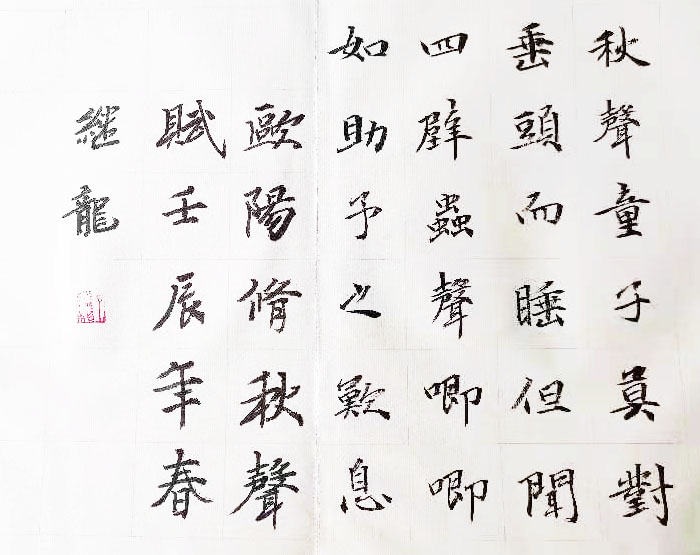 秋聲童子莫對
垂頭而睡但聞
四壁蟲聲唧唧
如助予之歎息
歐陽脩秋聲
賦壬辰年春
继龍